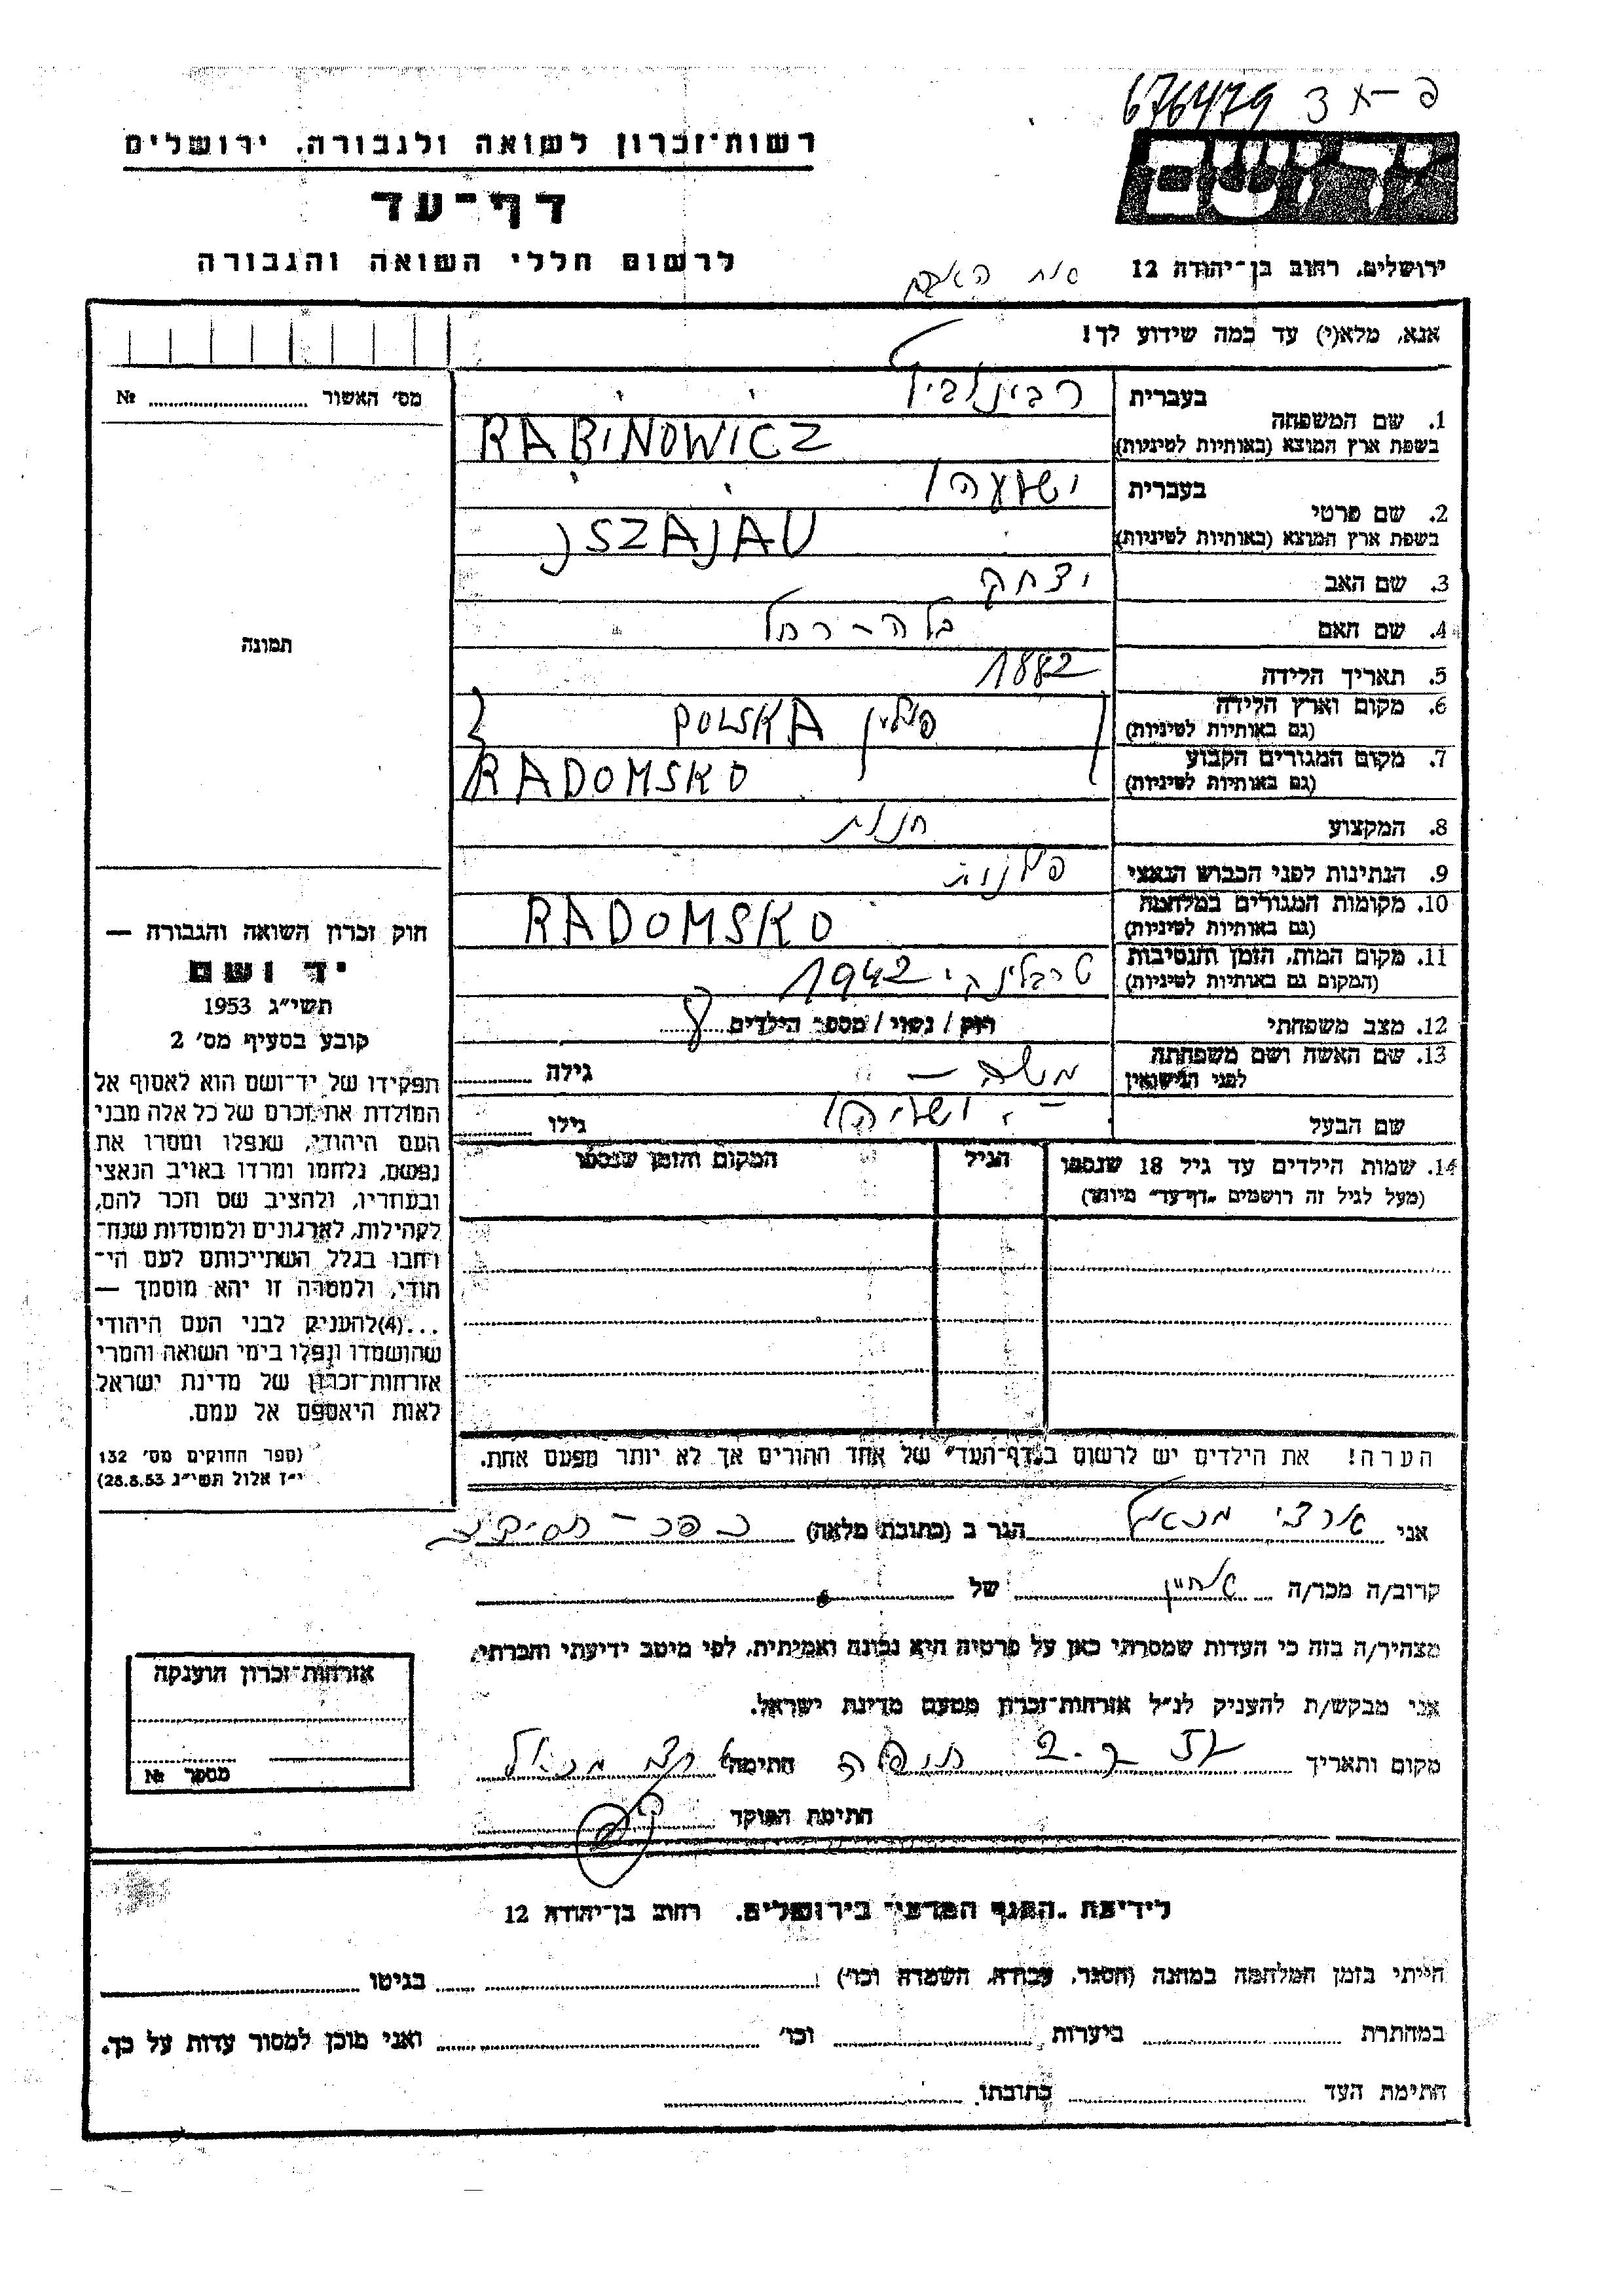 676479 פ-א 3
יד ושם
רשות־זכרון לשואה ולגבורה, ירושלים
דף־עד
לרשום חללי השואה והגבורה
ירושלים, רחוב בן־יהודה 12
אנא, מלא(י) עד כמה שידוע לך!
מס' האשור № ........
1. שם המשפחה
בעברית רבינוביץ
בשפת ארץ המוצא (באותיות לטיניות) RABINOWICZ
2. שם פרטי
בעברית ישעהו
בשפת ארץ המוצא (באותיות לטיניות) JSZAJAU
3. שם האב יצחק
4. שם האם בלה - רחל
5. תאריך הלידה 1882
6. מקום וארץ הלידה
(גם באותיות לטיניות) פולין POLSKA
7. מקום המגורים הקבוע
(גם באותיות לטיניות) RADOMSKO
8. המקצוע חנות
9. הנתינות לפני הכבוש הנאצי פולנית
10. מקומות המגורים במלחמה
(גם באותיות לטיניות) RADOMSKO
11. מקום המות, הזמן והנסיבות
(המקום גם באותיות לטיניות) טרבלינקי 1942
12. מצב משפחתי רווק / נשוי / מספר הילדים 8
13. שם האשה ושם משפחתה
לפני הנישואין גילה ........
שם הבעל גילו ........
14. שמות הילדים עד גיל 18 שנספו
(מעל לגיל זה רושמים „דף־עד" מיוחד)
הגיל
המקום והזמן שנספו
תמונה
חוק זכרון השואה והגבורה —
יד ושם
תשי"ג 1953
קובע בסעיף מס' 2
תפקידו של יד־ושם הוא לאסוף אל
המולדת את זכרם של כל אלה מבני
העם היהודי, שנפלו ומסרו את
נפשם, נלחמו ומרדו באויב הנאצי
ובעוזריו, ולהציב שם וזכר להם,
לקהילות, לארגונים ולמוסדות שנח־
רבו בגלל השתייכותם לעם הי־
הודי, ולמטרה זו יהא מוסמך —
...(4) להעניק לבני העם היהודי
שהושמדו ונפלו בימי השואה והמרי
אזרחות־זכרון של מדינת ישראל
לאות היאספם אל עמם.
(ספר החוקים מס' 132
י"ז אלול תשי"ג 28.8.53)
הערה! את הילדים יש לרשום ב„דף־העד" של אחד ההורים אך לא יותר מפעם אחת.
אני ארצי מכאל הגר ב (כתובת מלאה) כפר - חסידים
קרוב/ה מכר/ה אחיין של ........
מצהיר/ה בזה כי העדות שמסרתי כאן על פרטיה היא נכונה ואמיתית, לפי מיטב ידיעתי והכרתי.
אני מבקש/ת להעניק לנ"ל אזרחות־זכרון מטעם מדינת ישראל.
מקום ותאריך חיפה חתימה ארצי מכאל
חתימת הפוקד
אזרחות־זכרון הוענקה
מספר №
לידיעת „הסניף המדעי" בירושלים, רחוב בן־יהודה 12
הייתי בזמן המלחמה במחנה (הסגר, עבודה, השמדה וכו') ........ בגיטו ........
במחתרת ........ ביערות ........ וכו' ........ ואני מוכן למסור עדות על כך.
חתימת העד ........ כתובתו ........